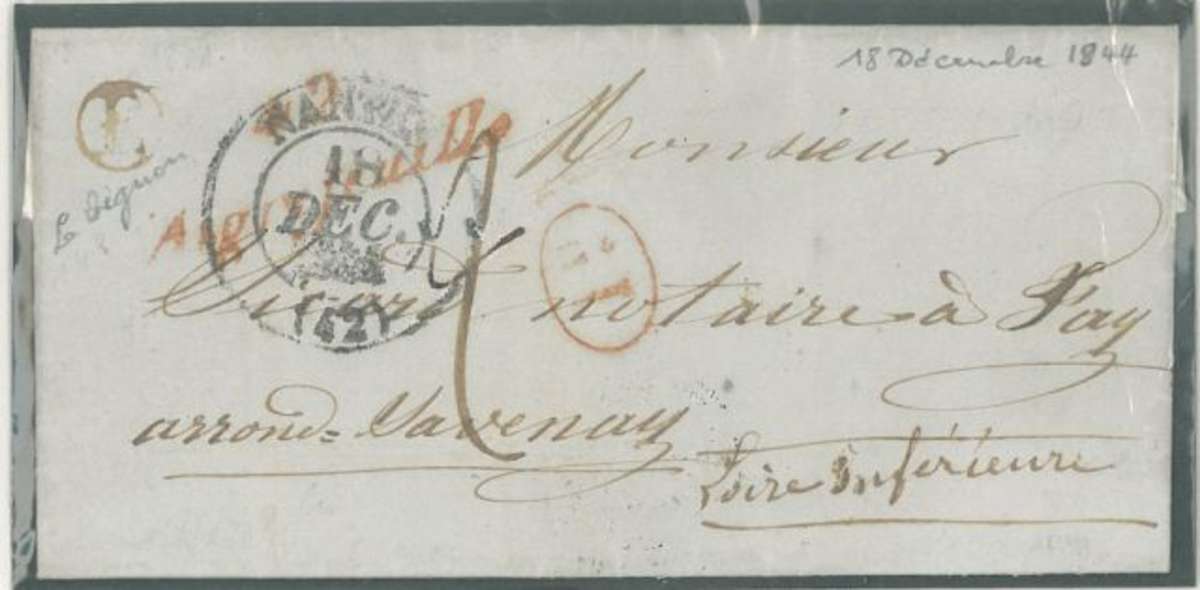 18 Décembre 1844
L
Le Pégnon
NANTES
18
DEC.
(42)
Monsieur
notaire à Fay
arrond= Savenay
Loire inférieure